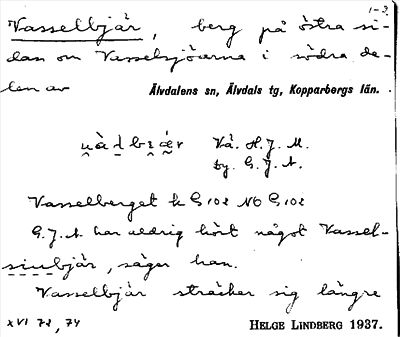 1-3.
Vasselbjär, berg på östra si-
dan om Vasselsjöarna i södra de-
len av Älvdalens sn, Älvdals tg, Kopparbergs län.
Vå. H. J. M.
by. G. J. A.
Vasselberget k G 102 NO G 102
G. J. A. har aldrig hört något Vassel-
siubjär, säger han.
Vasselbjär sträcker sig längre
XVI 72, 74 HELGE LINDBERG 1937.